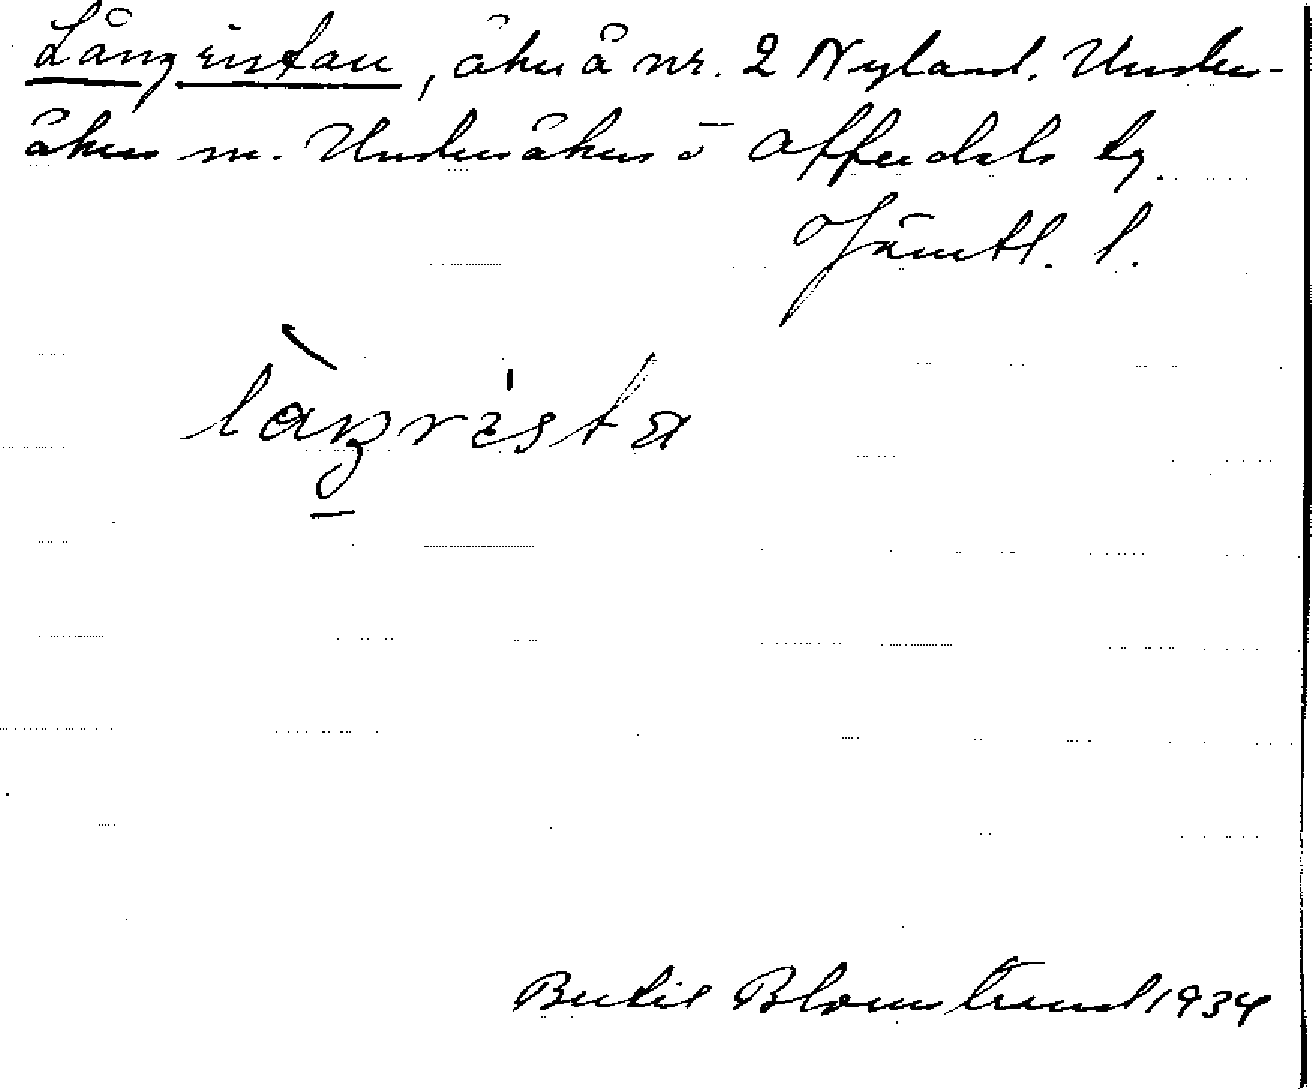 Långristan, åker å nr. 2 Nyland. Under-
åkers sn. Undersåkers o Offerdals tg.
Jämtl. l.
làŋrista
Bertil Blomstrand 1934